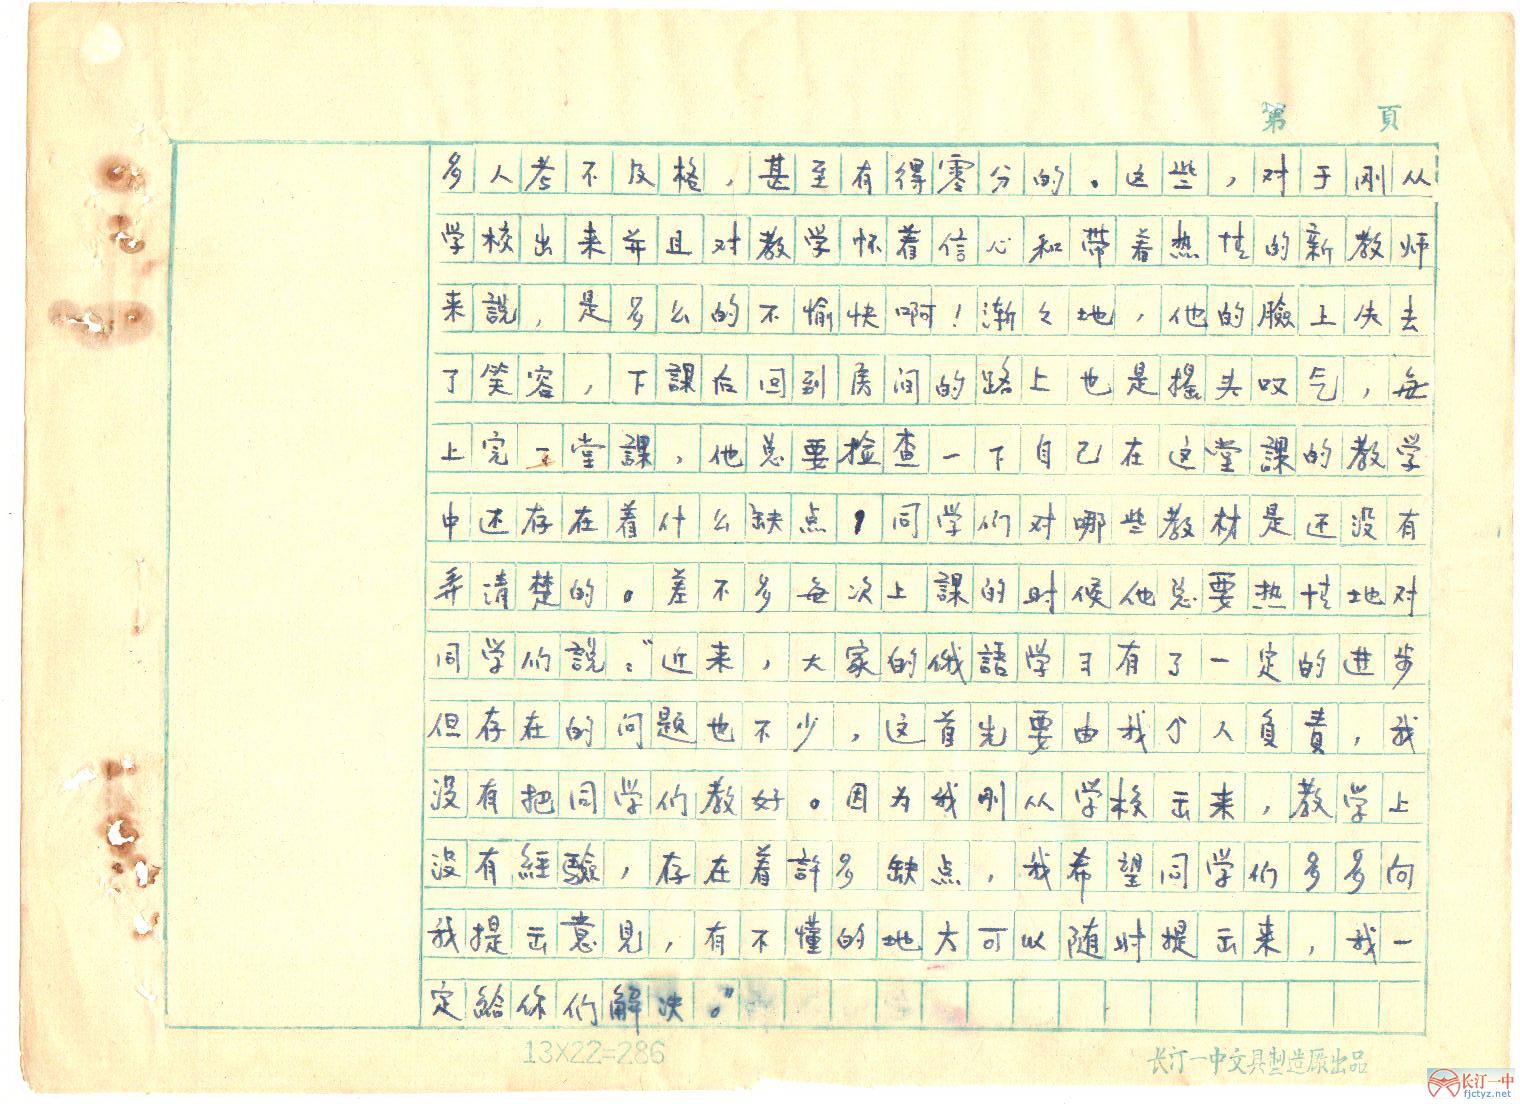 第 頁
多人考不及格，甚至有得零分的。这些，对于刚从
学校出来并且对教学怀着信心和带着热情的新教师
来說，是多么的不愉快啊！渐々地，他的臉上失去
了笑容，下課后回到房间的路上也是摇头叹气，每
上完一堂課，他总要检查一下自己在这堂課的教学
中还存在着什么缺点，同学们对哪些教材是还没有
弄清楚的。差不多每次上課的时候他总要热情地对
同学们說：“近来，大家的俄語学习有了一定的进步
但存在的问題也不少，这首先要由我个人負責，我
没有把同学们教好。因为我刚从学校出来，教学上
没有經驗，存在着許多缺点，我希望同学们多多向
我提出意見，有不懂的地方可以随时提出来，我一
定給你们解决。”
13×22=286
长汀一中文具製造厰出品
长汀一中
fjctyz.net